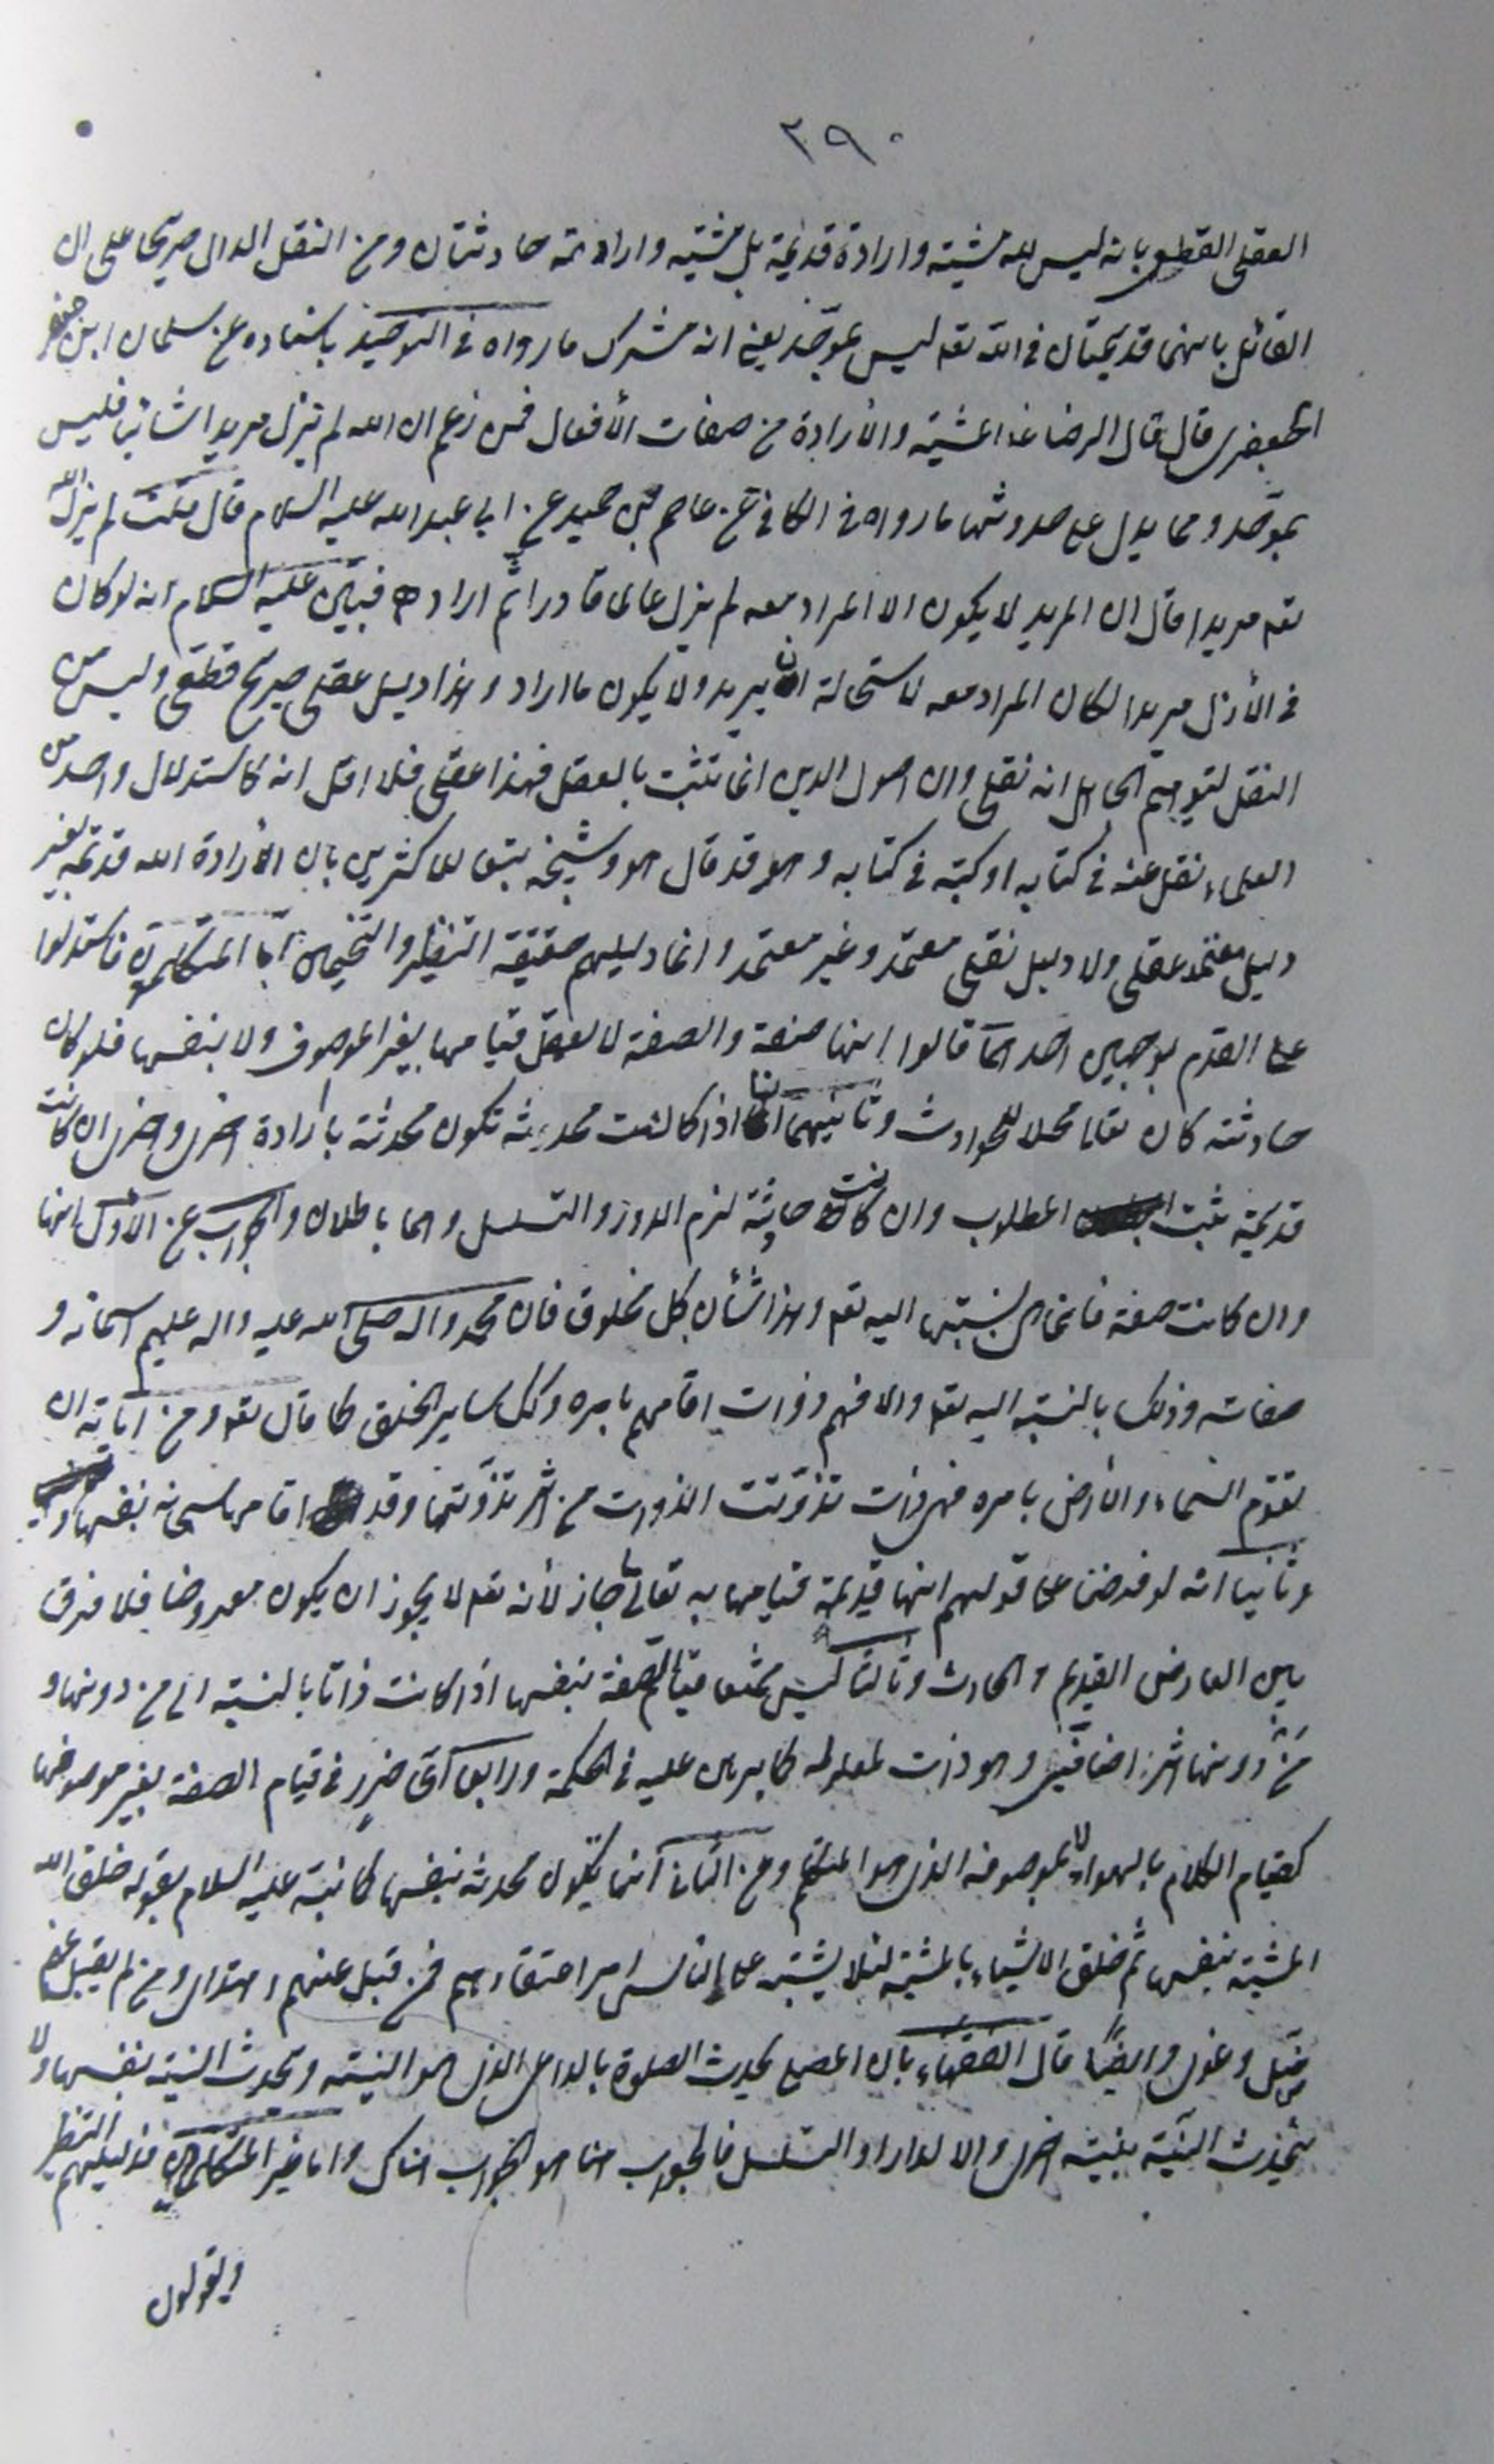 ٢٩٠
العقلى القطعى بانه ليس لله مشية وارادة قديمة بل مشيته وارادته حادثتان ومن النقل الدال صريحا على ان
القائل بانهما قديمتان فى الله تعه ليس بموحّد يعنى انه مشرك ما رواه فى التوحيد باسناده عن سليمان ابن جعفر
الجعفرى قال قال الرضا ع المشية والأرادة من صفات الأفعال فمن زعم ان الله لم يزل مريدا شائيا فليس
بموحّد ومما يدل على حدوثهما ما رواه فى الكافى عن عاصم بن حميد عن ابى عبد الله عليه السلام قال قلت لم يزل الله
تعه مريدا قال ان المريد لا يكون الا المراد معه لم يزل عالما قادرا ثم اراد فبيّن عليه السلام انه لو كان
فى الأزل مريدا لكان المراد معه لاستحالة ان يريد ولا يكون ما اراد وهذا دليل عقلى صريح قطعى وليس من
النقل ليتوهم الجاهل انه نقلى وان اصول الدين انما تثبت بالعقل فهذا عقلى فلا اقل انه كاستدلال واحد من
العلماء نقل عنه فى كتابه او كتبه فى كتابه وهو قد قال هو وشيخه تبعا للاكثرين بان الأرادة الله قديمة بغير
دليل معتمد عقلى ولا دليل نقلى معتمد وغير معتمد وانما دليلهم حقيقة التنظير والتخمين امّا المتكلمون فاستدلوا
على القدم بوجهين احدهما قالوا انها صفة والصفة لا يعقل قيامها بغير الموصوف ولا بنفسها فلو كانت
حادثة كان تعالى محلا للحوادث وثانيهما انها اذا كانت محدثة تكون محدثة بارادة اخرى واخرى ان كانت
قديمة ثبت المطلوب وان كانت حادثة لزم الدور والتسلسل وهما باطلان والجواب عن الأول انها
وان كانت صفة فانما هى بنسبتها اليه تعه وهذا شأن كل مخلوق فان محمد واله صلى الله عليه واله عليهم اسمائه و
صفاته وذلك بالنسبة اليه تعه والا فهم ذوات اقامهم بامره وكك ساير الخلق كما قال تعه ومن اياته ان
تقوم السماء والأرض بامره فهى ذات تذوّتت الذوات من اثر تذوّتها وقد اقامها سبحانه بنفسها
وثانيا انه لو فرضنا على قولهم انها قديمة قيامها به تعالى جاز لأنه تعه لا يجوز ان يكون معروضا فلا فرق
بين العارض القديم والحادث وثالثا ليس ممتنعا قيام الصفة بنفسها اذا كانت ذاتا بالنسبة الى من دونها و
من دونها اثر اضافى وهو ذات لمعلوله كما برهن عليه فى الحكمة ورابعا اىّ ضرر فى قيام الصفة بغير موصوفها
كقيام الكلام بالهواء لا بموصوفه الذى هو المتكلم وعن الثانى انها تكون محدثة بنفسها كما نبّه عليه السلام بقوله خلق الله
المشية بنفسها ثم خلق الاشياء بالمشية لئلا يشتبه على الناس امر اعتقادهم فمن قبل عنهم اهتدى ومن لم يقبل عنهم
ضلّ وغوى وايضًا قال الفقهاء بان المصلى يحدث الصلوة بالداعى الذى هو النية وتحدث النية بنفسها ولا
تحدث النية بنية اخرى والا لدار او التسلسل فالجواب هنا هو الجواب هناك واما غير المتكلمين فدليلهم التنظير
ويقولون